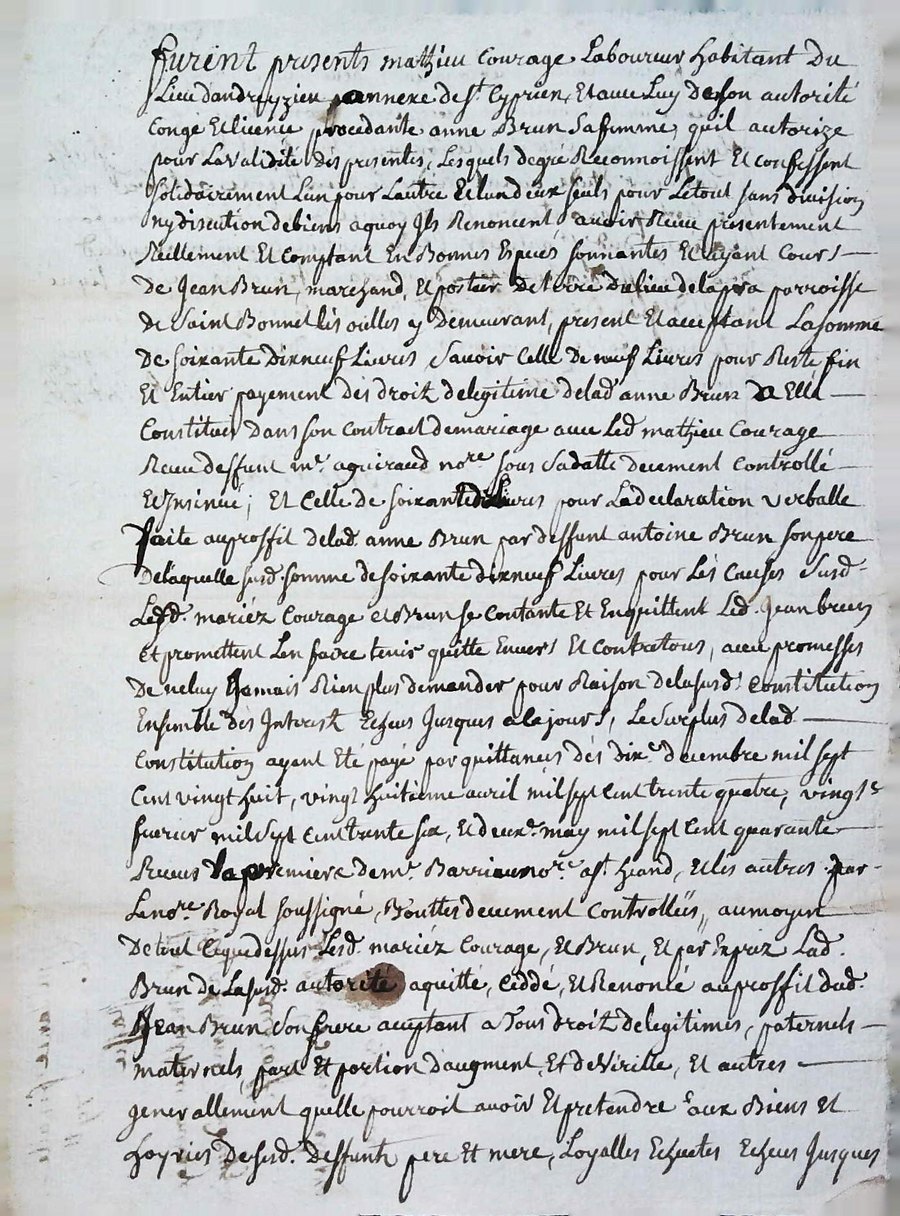 furent presents mathieu Courage Laboureur habitant Du
Lieu dandreyzieu annexe de st. Cyprien, Et avec Luy De son autorité
Congé Et licence procedante anne Brun Sa femme, quil autorize
pour La validité des presentes, Lesquels de gré Reconnoissent Et confessent
solidairement Lun pour Lautre Et lun deux seuls pour Le tout sans division
ny discution de biens a quoy Ils Renoncent, avoir Receu presentement
Reellement Et Comptant En Bonnes Especes sonnantes Et ayant Cours
de Jean Brun, marchand, Et postier de loire du lieu de la pra parroisse
de Saint Bonnet les oulles y Demeurant, present Et acceptant La somme
De soixante dix neuf Livres Savoir Celle De neuf Livres pour Reste fin
Et Entier payement des droit de legitime de lad anne Brun a Ella
Constitués Dans son Contract de mariage avec Led mathieu Courage
Receu deffunt mr. aguiraud nore sous Sa datte Deuement Controllé
Et Insinué; Et Celle de soixante dix Livres pour La declaration verballe
faite au proffit de lad. anne Brun par deffunt antoine Brun son pere
De laquelle susd. somme de soixante dix neuf Livres pour Les Causes Susd.
Lesd. mariéz Courage et Brun se Contante Et En quittent Led. Jean brun
et promettent Len faire tenir quitte Envers Et Contre tous, avec promesses
De ne luy Jamais Rien plus demander pour Raison de la susd. Constitution
Ensemble des Interest Echeus Jusques a ce jours, Le surplus de lad.
Constitution ayant Eté payé par quittances des dixe. decembre mil sept
Cent vingt huit, vingt huitieme avril mil sept Cent trente quatre, vingt e
fevrier mil sept Cent trente six, et deuxe. may mil sept Cent quarante
Receus La premiere de mr. Barrieu nore. a st. heand, Et les autres par
Le nore Royal soussigné, Touttes deuement Controllëis, au moyen
De tout Ce que dessus Lesd. mariéz Courage, Et Brun, Et par Exprez Lad.
Brun de La susd. autorité a quitté, Ceddé, Et Renoncé au proffit dud.
Jean Brun son frere acceptant a Tous droit de legitimes, paternels
maternels part Et portion daugment, Et de Virille, Et autres
generallement quelle pourroit avoir Et pretendre aux Biens Et
hoyries De sesd. deffunts pere Et mere, Loyalles Echuttes Echeus Jusques